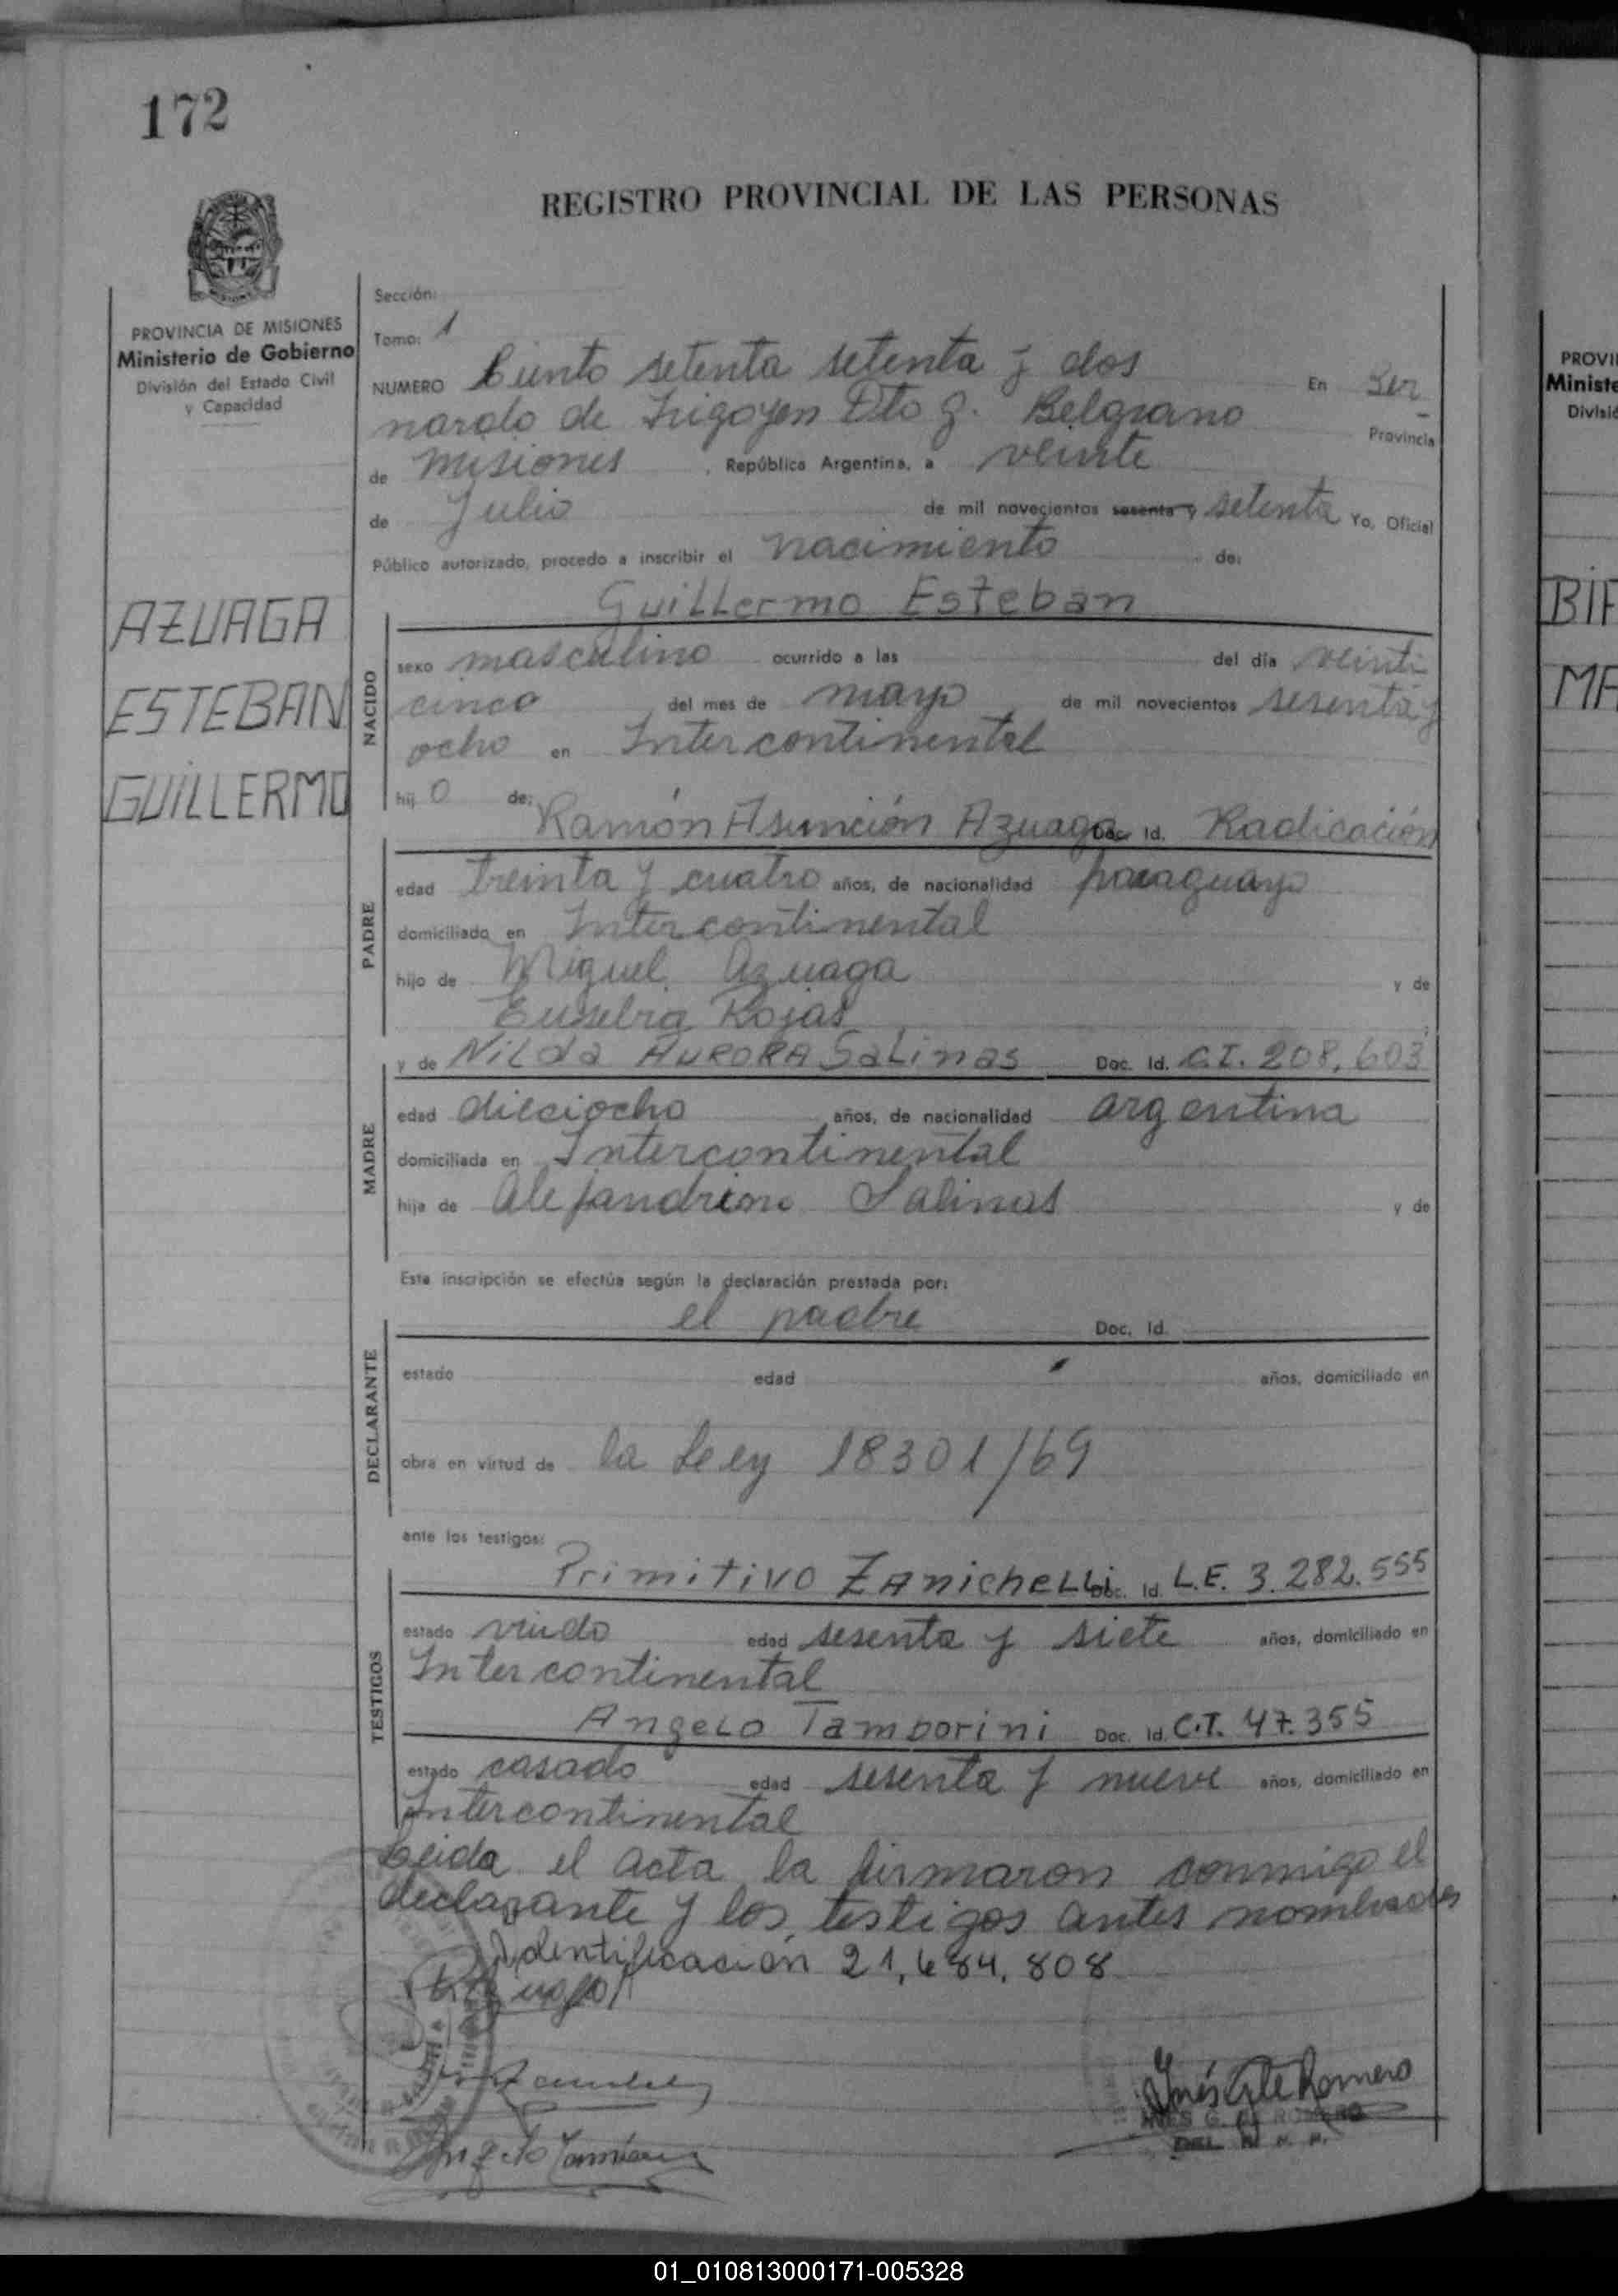 172
REGISTRO PROVINCIAL DE LAS PERSONAS
PROVINCIA DE MISIONES
Ministerio de Gobierno
División del Estado Civil
y Capacidad
AZUAGA
ESTEBAN
GUILLERMO
Sección:
Tomo: 1
NUMERO Ciento setenta setenta y dos En Ber
nardo de Irigoyen Dto g. Belgrano Provincia
de Misiones , República Argentina, a veinte
de Julio de mil novecientos sesenta y setenta Yo, Oficial
Público autorizado, procedo a inscribir el nacimiento de:
Guillermo Esteban
NACIDO
sexo masculino ocurrido a las del día veinti
cinco del mes de mayo de mil novecientos sesenta y
ocho en Intercontinental
hij o de:
Ramón Asunción Azuaga Doc. Id. Radicación
PADRE
edad treinta y cuatro años, de nacionalidad paraguayo
domiciliado en Intercontinental
hijo de Miguel Azuaga y de
Eusebia Rojas
y de Nilda AURORA Salinas Doc. Id. C.I. 208.603
MADRE
edad dieciocho años, de nacionalidad argentina
domiciliada en Intercontinental
hija de Alejandrino Salinas y de
Esta inscripción se efectúa según la declaración prestada por:
el padre Doc. Id.
DECLARANTE
estado edad años, domiciliado en
obra en virtud de la Ley 18301/69
ante los testigos:
Primitivo ZAnicheLLi Doc. Id. L.E. 3.282.555
TESTIGOS
estado viudo edad sesenta y siete años, domiciliado en
Intercontinental
AngeLo Tamborini Doc. Id. C.I. 47.355
estado casado edad sesenta y nueve años, domiciliado en
Intercontinental
Leida el acta la firmaron conmigo el
declarante y los testigos antes nombrados
Identificación 21,684,808
Inés G de Romero
INES G. DE ROMERO
PROVI
Ministe
Divisió
BIF
MA
01_010813000171-005328